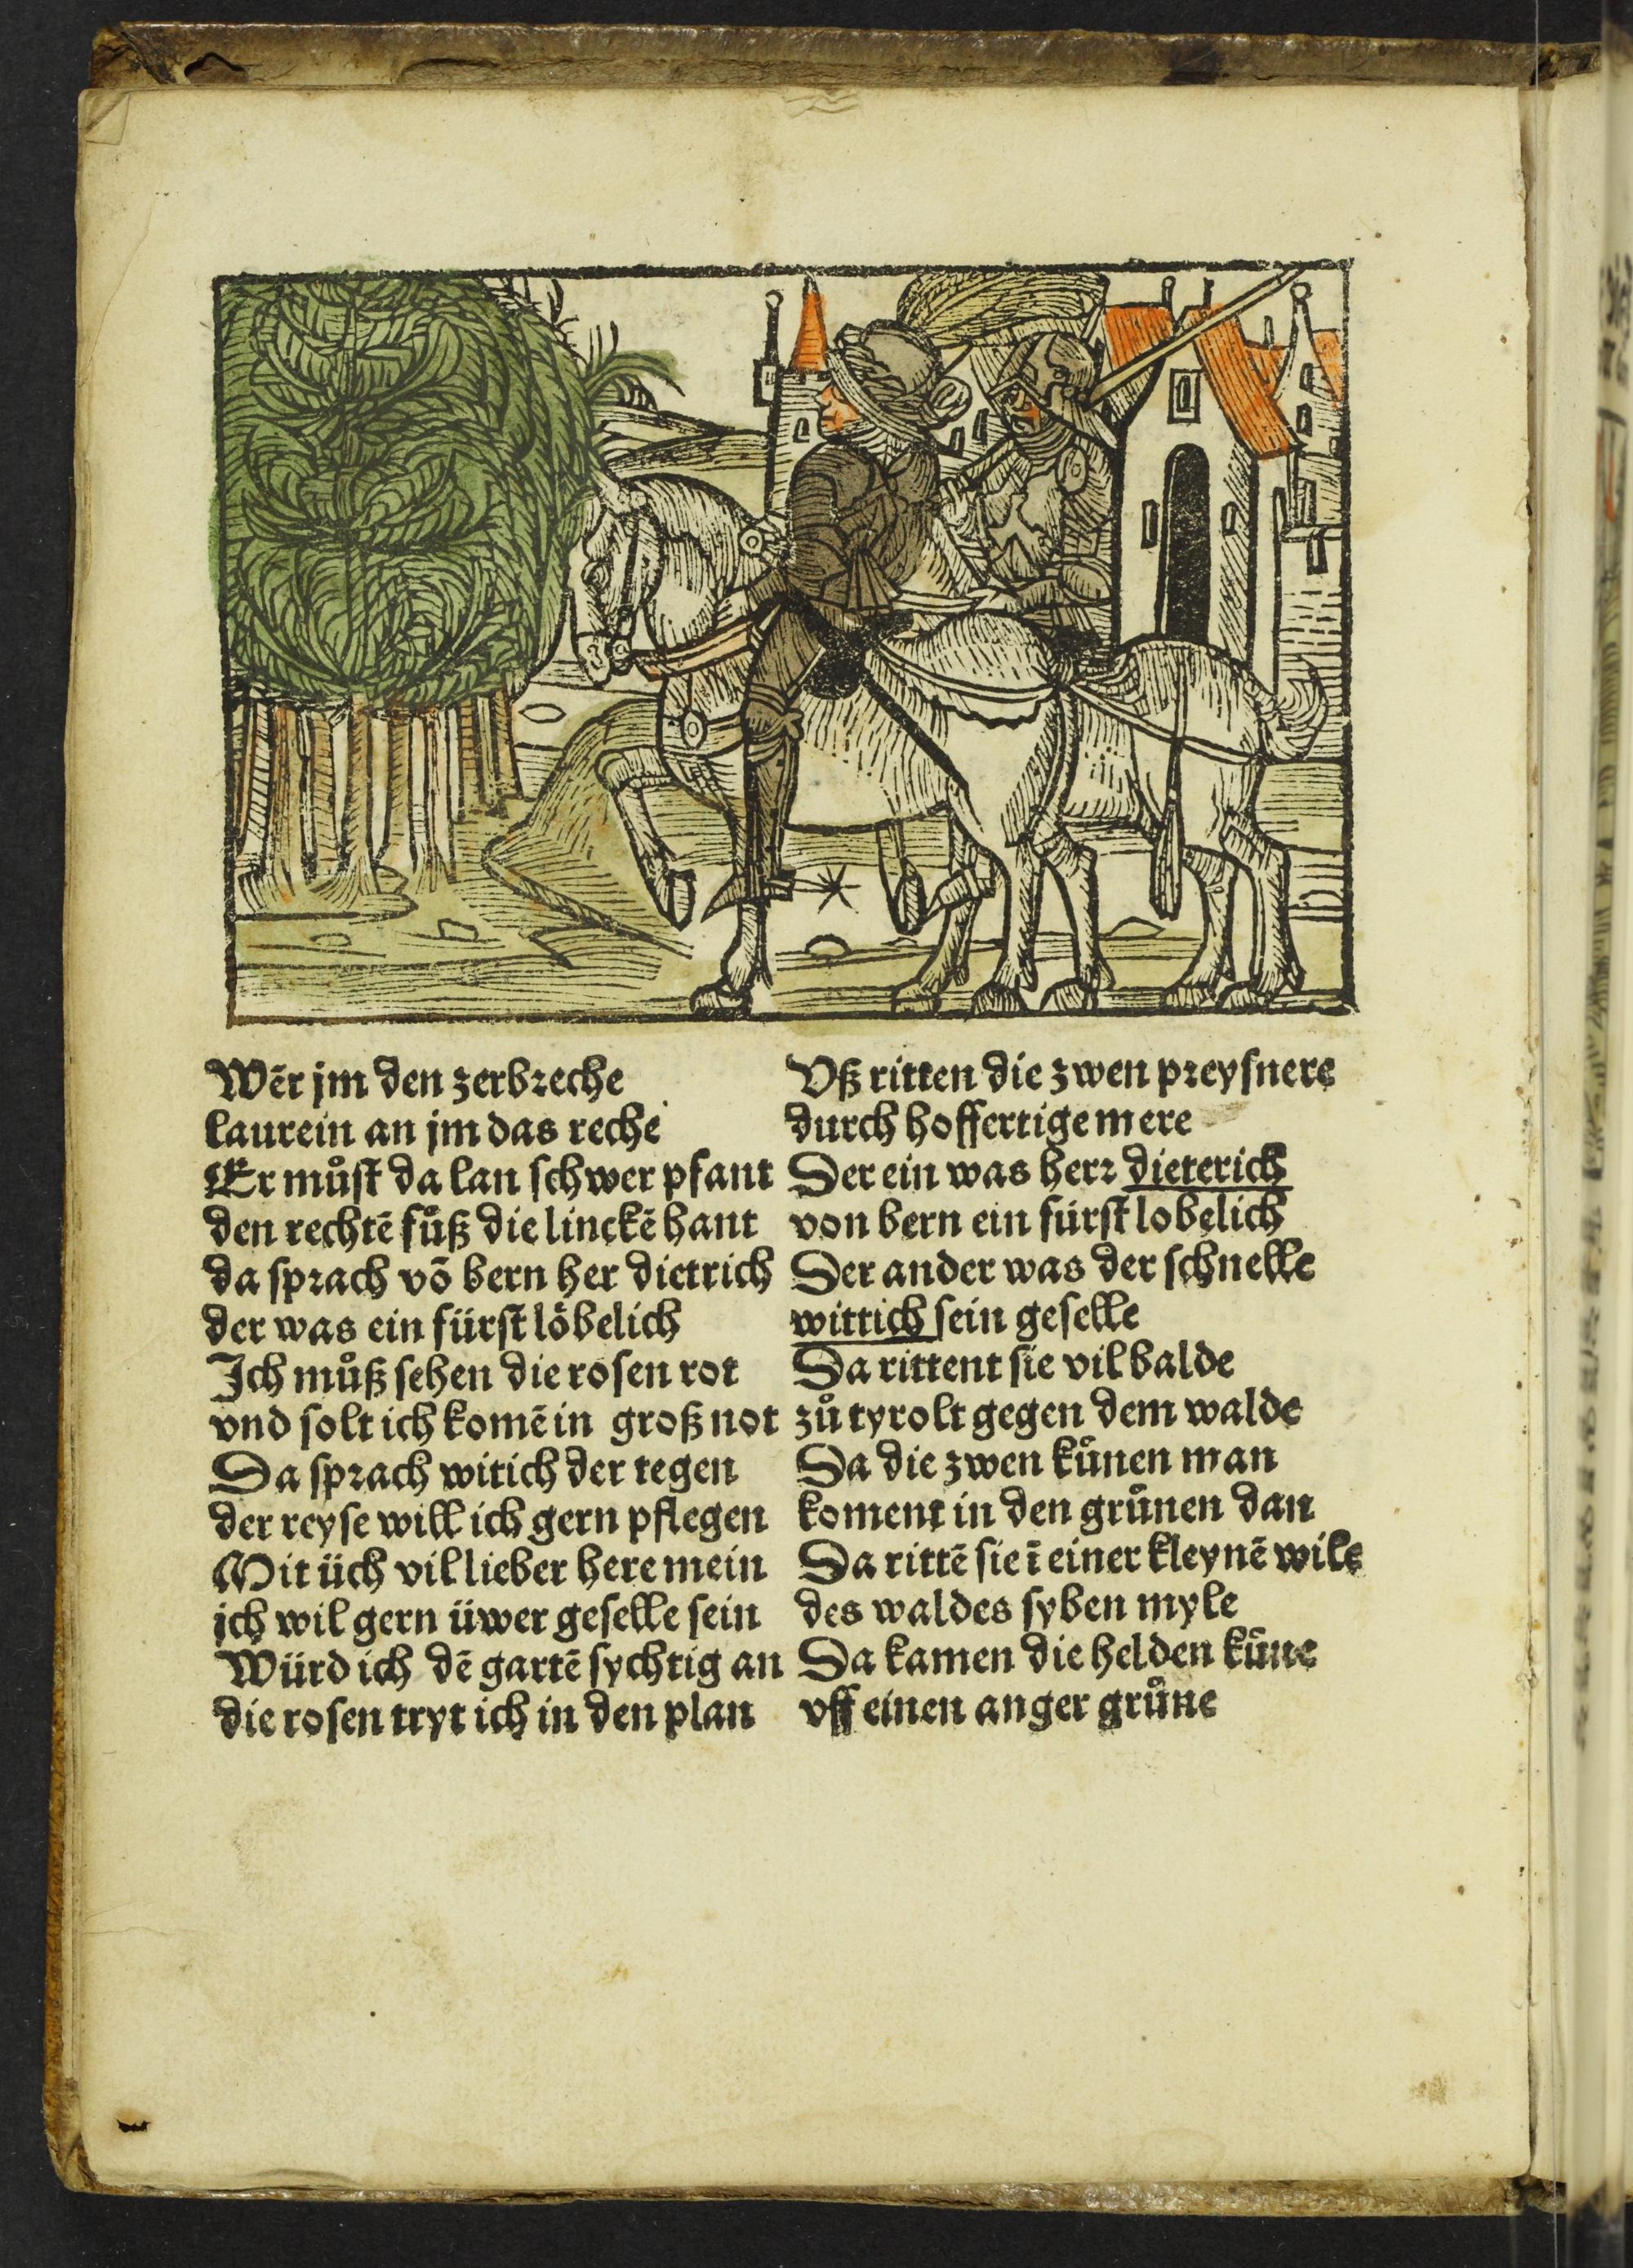 Wēr jm den zerbreche
laurein an jm das reche
Er muͦst da lan schwer pfant
den rechtē fuͦß die linckē hant
da sprach võ bern her dietrich
der was ein fürst loͤbelich
Ich muͦß sehen die rosen rot
vnd solt ich komē in groß not
Da sprach witich der tegen
der reyse will ich gern pflegen
Mit üch vil lieber here mein
ich wil gern üwer geselle sein
Würd ich dē gartē sychtig an
die rosen tryt ich in den plan
Vß ritten die zwen preysnere
durch hoffertige mere
Der ein was herr dieterich
von bern ein fürst lobelich
Der ander was der schnelle
wittich sein geselle
Da rittent sie vil balde
zuͦ tyrolt gegen dem walde
Da die zwen kuͦnen man
koment in den gruͦnen dan
Da rittē sie ī einer kleynē wile
des waldes syben myle
Da kamen die helden kuͦne
vff einen anger gruͦne